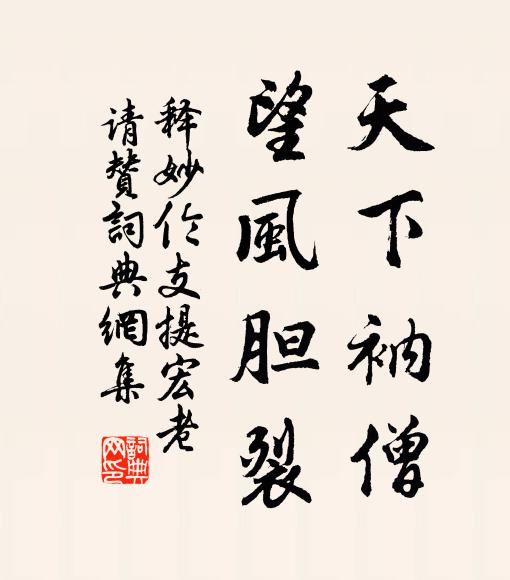 天下衲僧
望風胆裂
释妙伦支提宏老
请赞詞典網集
詞典網印